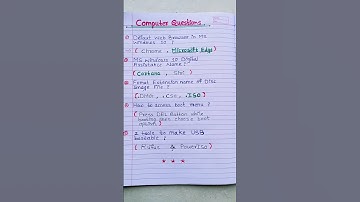 Computer Questions
Default Web Browser in Ms
Windows 10 ?
( Chrome , Microsoft Edge)
MS windows 10 Digital
Assistante Name ?
(Cortana , Siri)
File Extension name of Disc
Image File ?
( .Docx , .Csv , .ISO)
How to access boot menu ?
( Press DEL Button while
booting then choose boot
option)
2 tools to make USB
bootable ?
( Rufus & PowerIso)